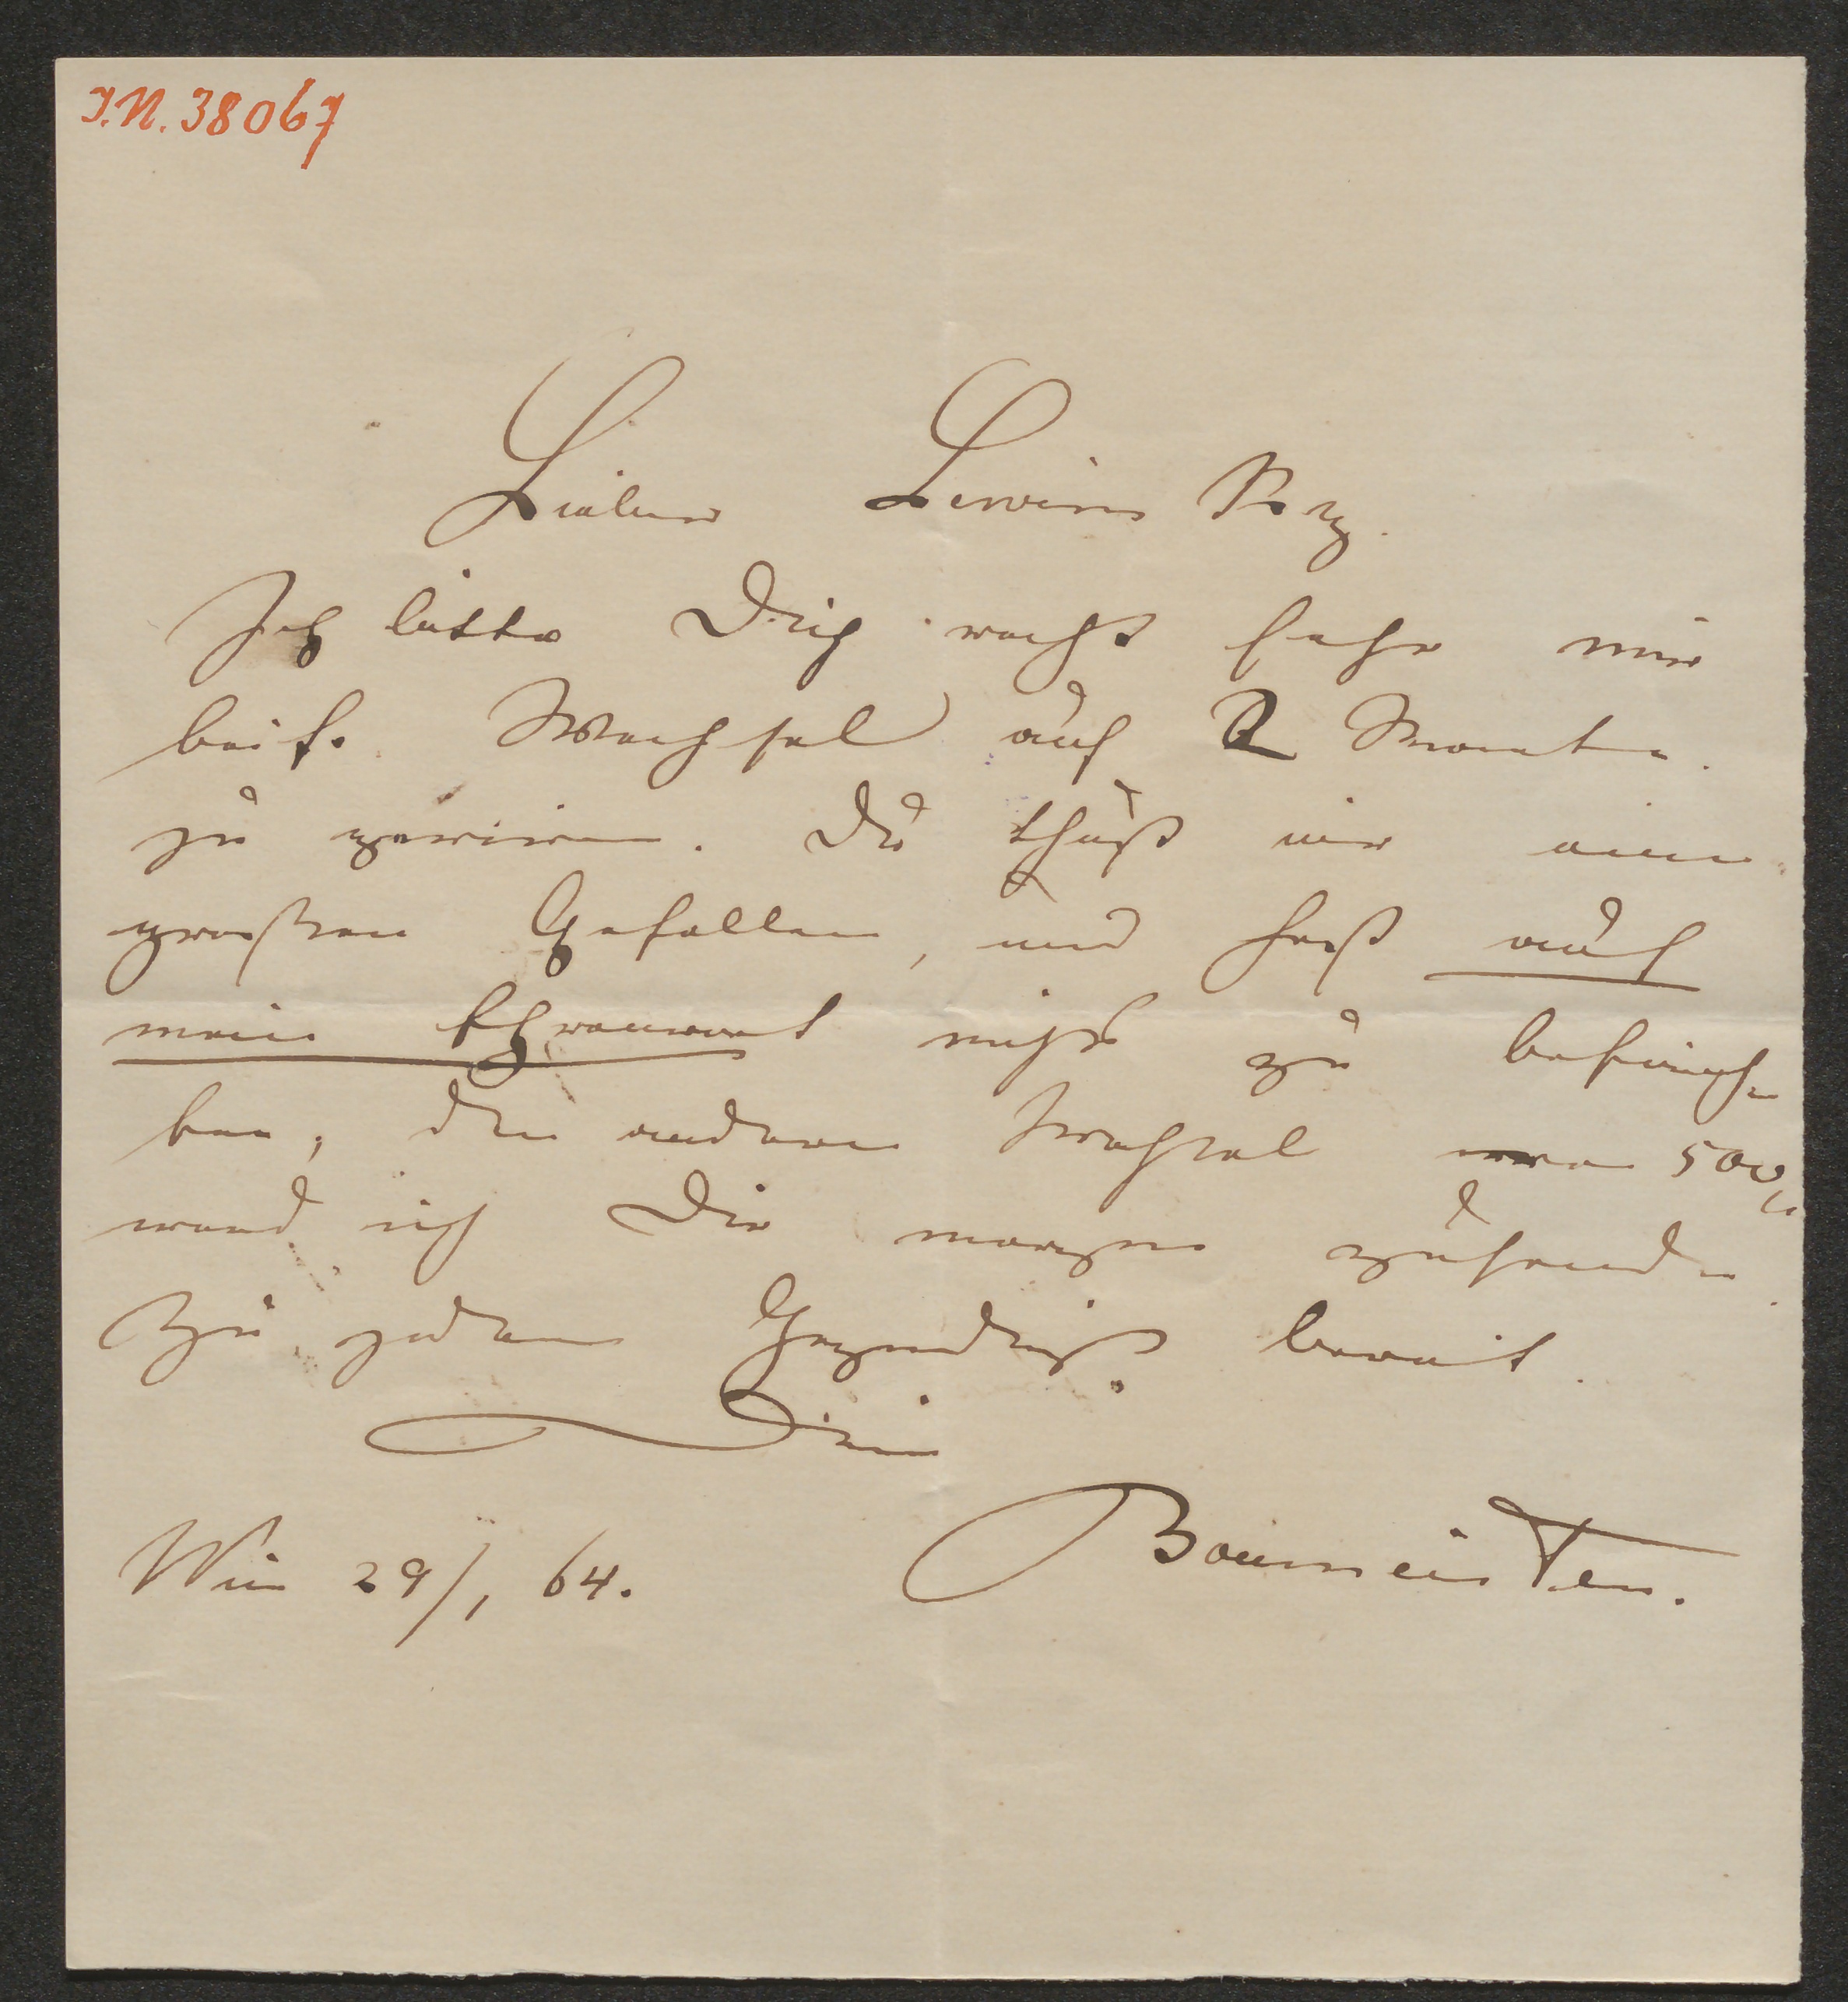 J.N. 38067
Lieber Lewinsky.
Ich bitte Dich recht sehr mir
beif. Wechsel auf 2 Monate
zu geriren. Du thust mir einen
großen Gefallen, und hast auf
mein Ehrenwort nichts zu befürch-
ten, den anderen Wechsel von 500
werd ich Dir morgen zusenden
Zu jedem Gegendienst bereit
Dein
Baumeister.
Wien 29/1 64.